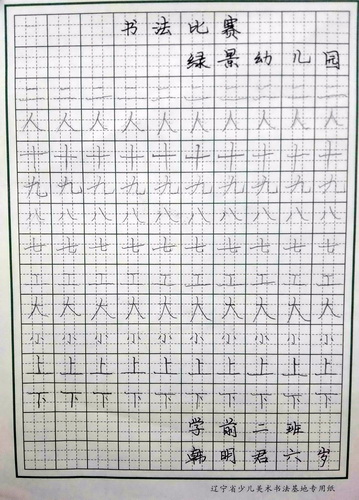 书法比赛
绿景幼儿园
二二二二二二二二二二
人人人人人人人人人人
十十十十十十十十十十
九九九九九九九九九九
八八八八八八八八八八
七七七七七七七七七七
工工工工工工工工工工
大大大大大大大大大大
小小小小小小小小小小
上上上上上上上上上上
下下下下下下下下下下
学前二班
韩明君六岁
辽宁省少儿美术书法基地专用纸